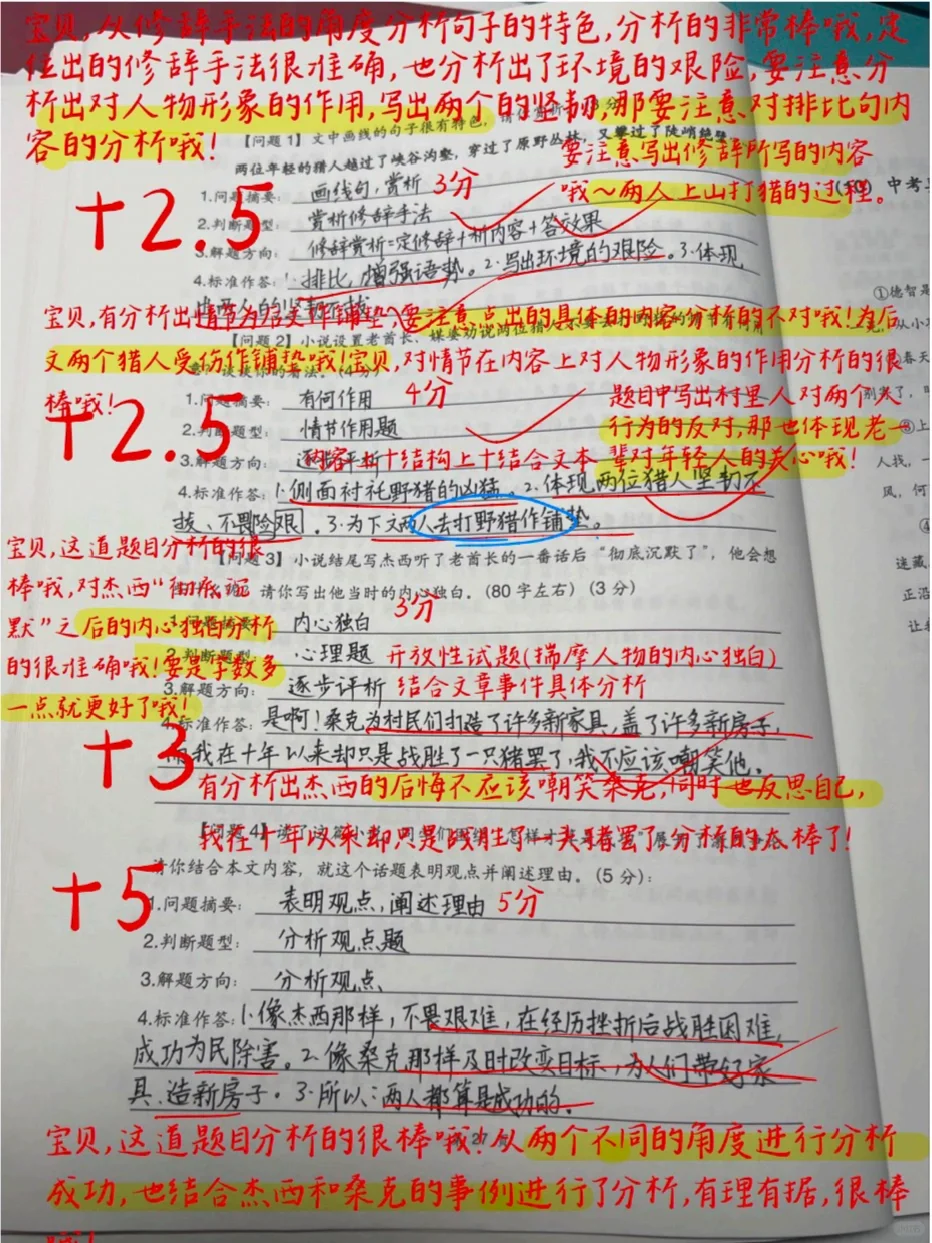 宝贝,从修辞手法的角度分析句子的特色,分析的非常棒哦,定
位出的修辞手法很准确,也分析出了环境的艰险,要注意分
析出对人物形象的作用,写出两个的坚韧,那要注意对排比句内
容的分析哦!
【问题 1】文中画线的句子很有特色,请你
两位年轻的猎人越过了峡谷沟壑,穿过了原野丛林,又攀过了陡峭绝壁
要注意写出修辞所写的内容
哦~两人上山打猎的过程。
+2.5
1.问题摘要: 画线句,赏析 3分
2.判断题型: 赏析修辞手法
3.解题方向: 修辞赏析=定修辞+析内容+答效果
4.标准作答: 1.排比,增强语势。2.写出环境的艰险。3.体现
出两人的坚韧不拔
宝贝,有分析出情节为后文作铺垫,要注意点出的具体的内容分析的不对哦!为后
【问题 2】小说设置老首长、媒婆劝说两位猎人
文两个猎人受伤作铺垫哦!宝贝,对情节在内容上对人物形象的作用分析的很
棒哦!
+2.5
1.问题摘要: 有何作用 4分
2.判断题型: 情节作用题
3.解题方向: 逐步评析 内容上+结构上+结合文本
题目中写出村里人对两个人
行为的反对,那也体现老一
辈对年轻人的关心哦!
4.标准作答: 1.侧面衬托野猪的凶猛。2.体现两位猎人坚韧不
拔、不畏险艰。3.为下文两人去打野猎作铺垫。
宝贝,这道题目分析的很
棒哦,对杰西“彻底沉
默”之后的内心独白分析
的很准确哦!要是字数多
一点就更好了哦!
【问题 3】小说结尾写杰西听了老首长的一番话后“彻底沉默了”,他会想
请你写出他当时的内心独白。(80 字左右)(3 分)
+3
1.问题摘要: 内心独白 3分
2.判断题型: 心理题 开放性试题(揣摩人物的内心独白)
3.解题方向: 逐步评析 结合文章事件具体分析
4.标准作答: 是啊!桑克为村民们打造了许多新家具,盖了许多新房子,
而我在十年以来却只是战胜了一只猪罢了,我不应该嘲笑他。
有分析出杰西的后悔不应该嘲笑桑克,同时也反思自己,
我在十年以来却只是战胜了一头猪罢了分析的太棒了!
【问题 4】读了这篇小说
请你结合本文内容,就这个话题表明观点并阐述理由。(5 分):
+5
1.问题摘要: 表明观点,阐述理由 5分
2.判断题型: 分析观点题
3.解题方向: 分析观点
4.标准作答: 1.像杰西那样,不畏艰难,在经历挫折后战胜困难,
成功为民除害。2.像桑克那样及时改变目标,为人们带好家
具、造新房子。3.所以:两人都算是成功的。
宝贝,这道题目分析的很棒哦!从两个不同的角度进行分析
成功,也结合杰西和桑克的事例进行了分析,有理有据,很棒
哦!
27
中考
①德智是